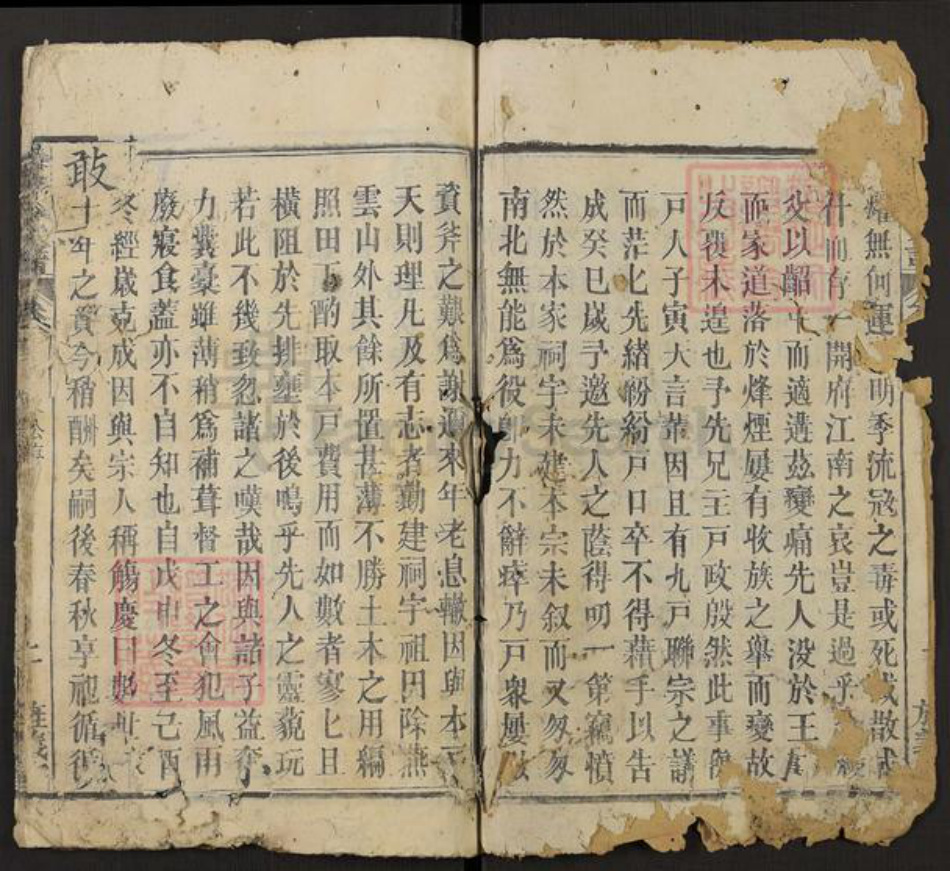 耀無何運 明季流寇之毒或死或散或
什而存 開府江南之哀豈是過乎
父以韶 而適遘茲變痛先人没於王
而家道落於烽煙屢有收族之舉而變故
反覆未遑也予先兄主戶政殷然此事
戶人子寅大言輩因且有九戶聯宗之議
而茫匕先緒紛紛戶口卒不得藉手以告
成癸巳歲予邀先人之蔭得叨一第竊憤
然於本家祠宇未建本宗未叙而又匆匆
南北無能為役 力不辭瘁乃戶衆屢
資斧之艱為謝邇來年老息轍因與本
天則理凡及有志者勤建祠宇祖田除燕
雲山外其餘所置甚薄不勝土木之用編
照田丁酌取本戶費用而如數者寥匕且
橫阻於先排壅於後嗚乎先人之靈藐玩
若此不幾致忽諸之嘆哉因與諸子益奮
力囊橐雖薄稍為補葺督工之會犯風雨
廢寢食蓋亦不自知也自戊申冬至己酉
冬經歲克成因與宗人稱觴慶曰
敢十年之責今稍酬矣嗣後春秋享祀循循